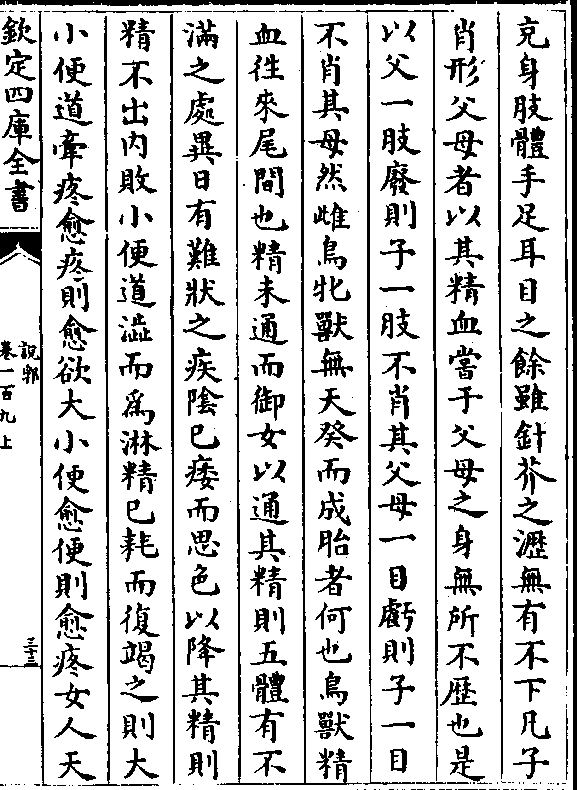 充身肢體手足耳目之餘雖針芥之瀝無有不下凡子
肖形父母者以其精血嘗于父母之身無所不歴也是
以父一肢廢則子一肢不肖其父母一目虧則子一目
不肖其母然雌鳥牝獸無天癸而成胎者何也鳥獸精
血徃來尾間也精未通而御女以通其精則五體有不
滿之處異日有難狀之疾隂已痿而思色以降其精則
精不出内敗小便道澁而為淋精已耗而復竭之則大
小便道牽疼愈疼則愈欲大小便愈便則愈疼女人天
欽定四庫全書
說郛
卷一百九上
三十三